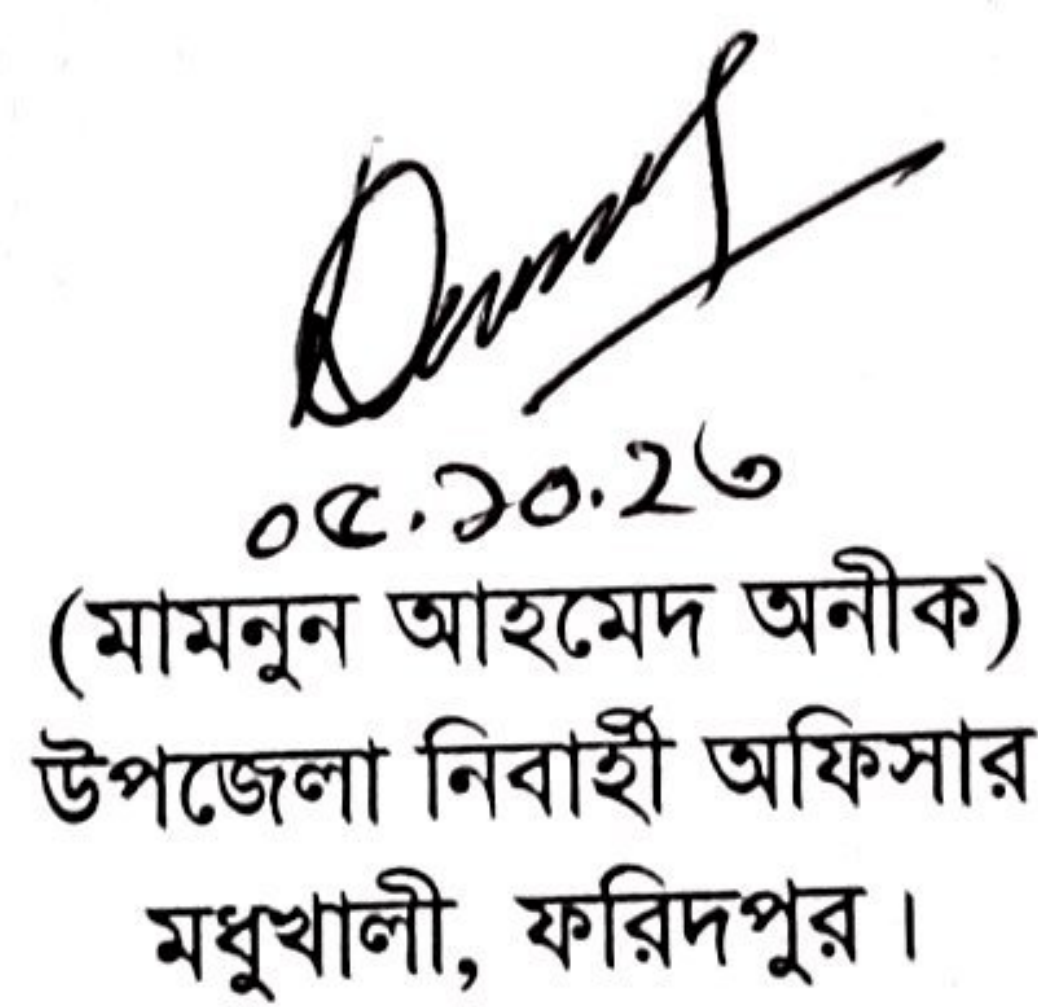 ০৫.১০.২৩
(মামনুন আহমেদ অনীক)
উপজেলা নির্বাহী অফিসার
মধুখালী, ফরিদপুর।